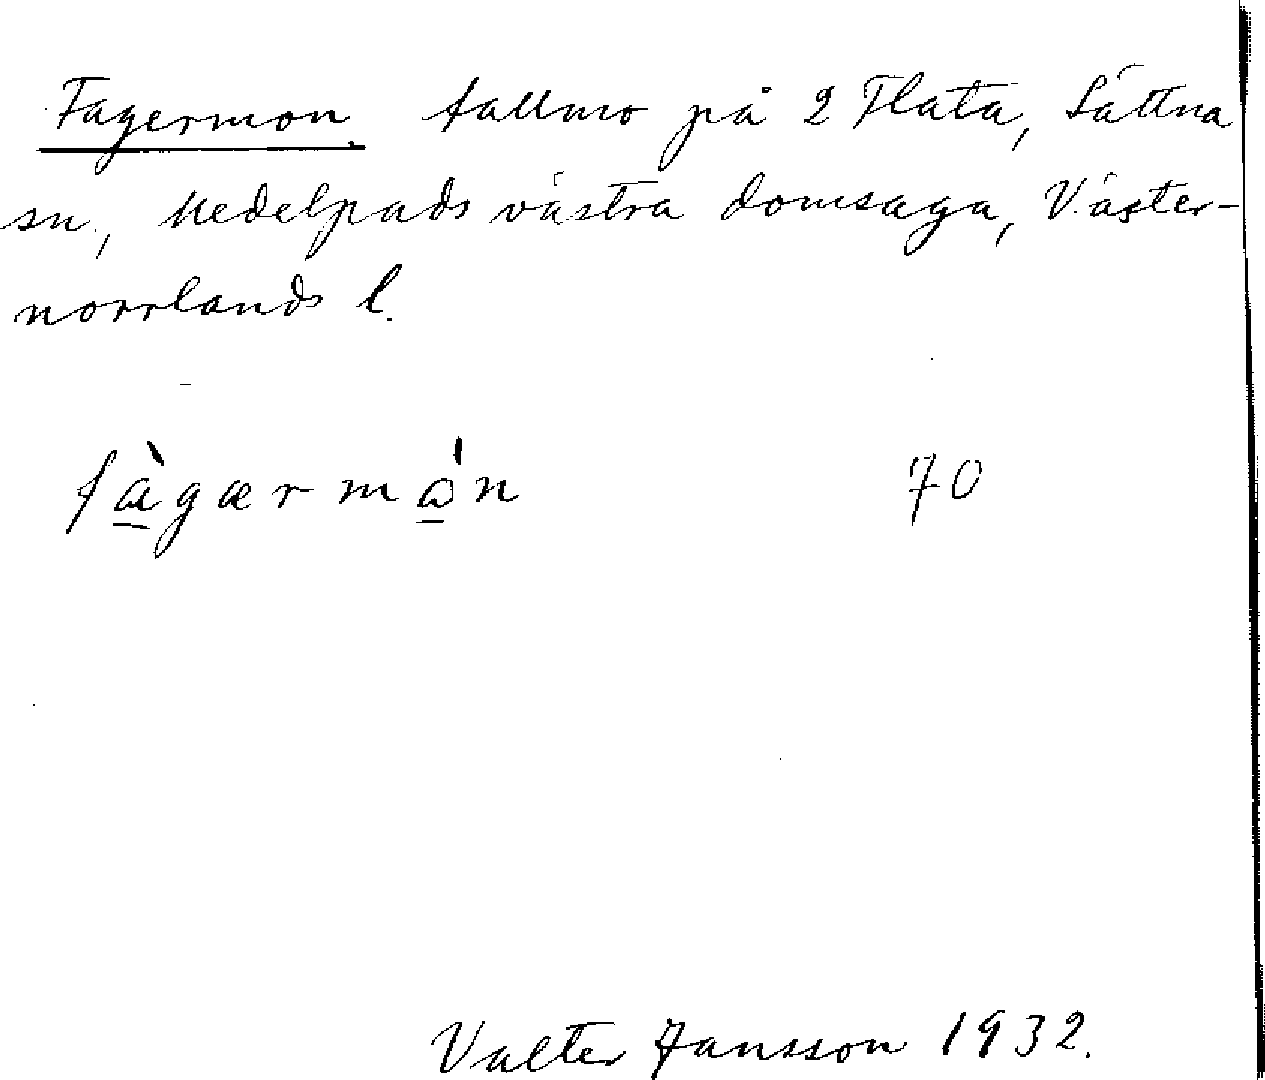 Fagermon tallmo på 2 Flata, Sättna
sn, Medelpads västra domsaga, Väster-
norrlands l.
fàgærmån 70
Valter Jansson 1932.